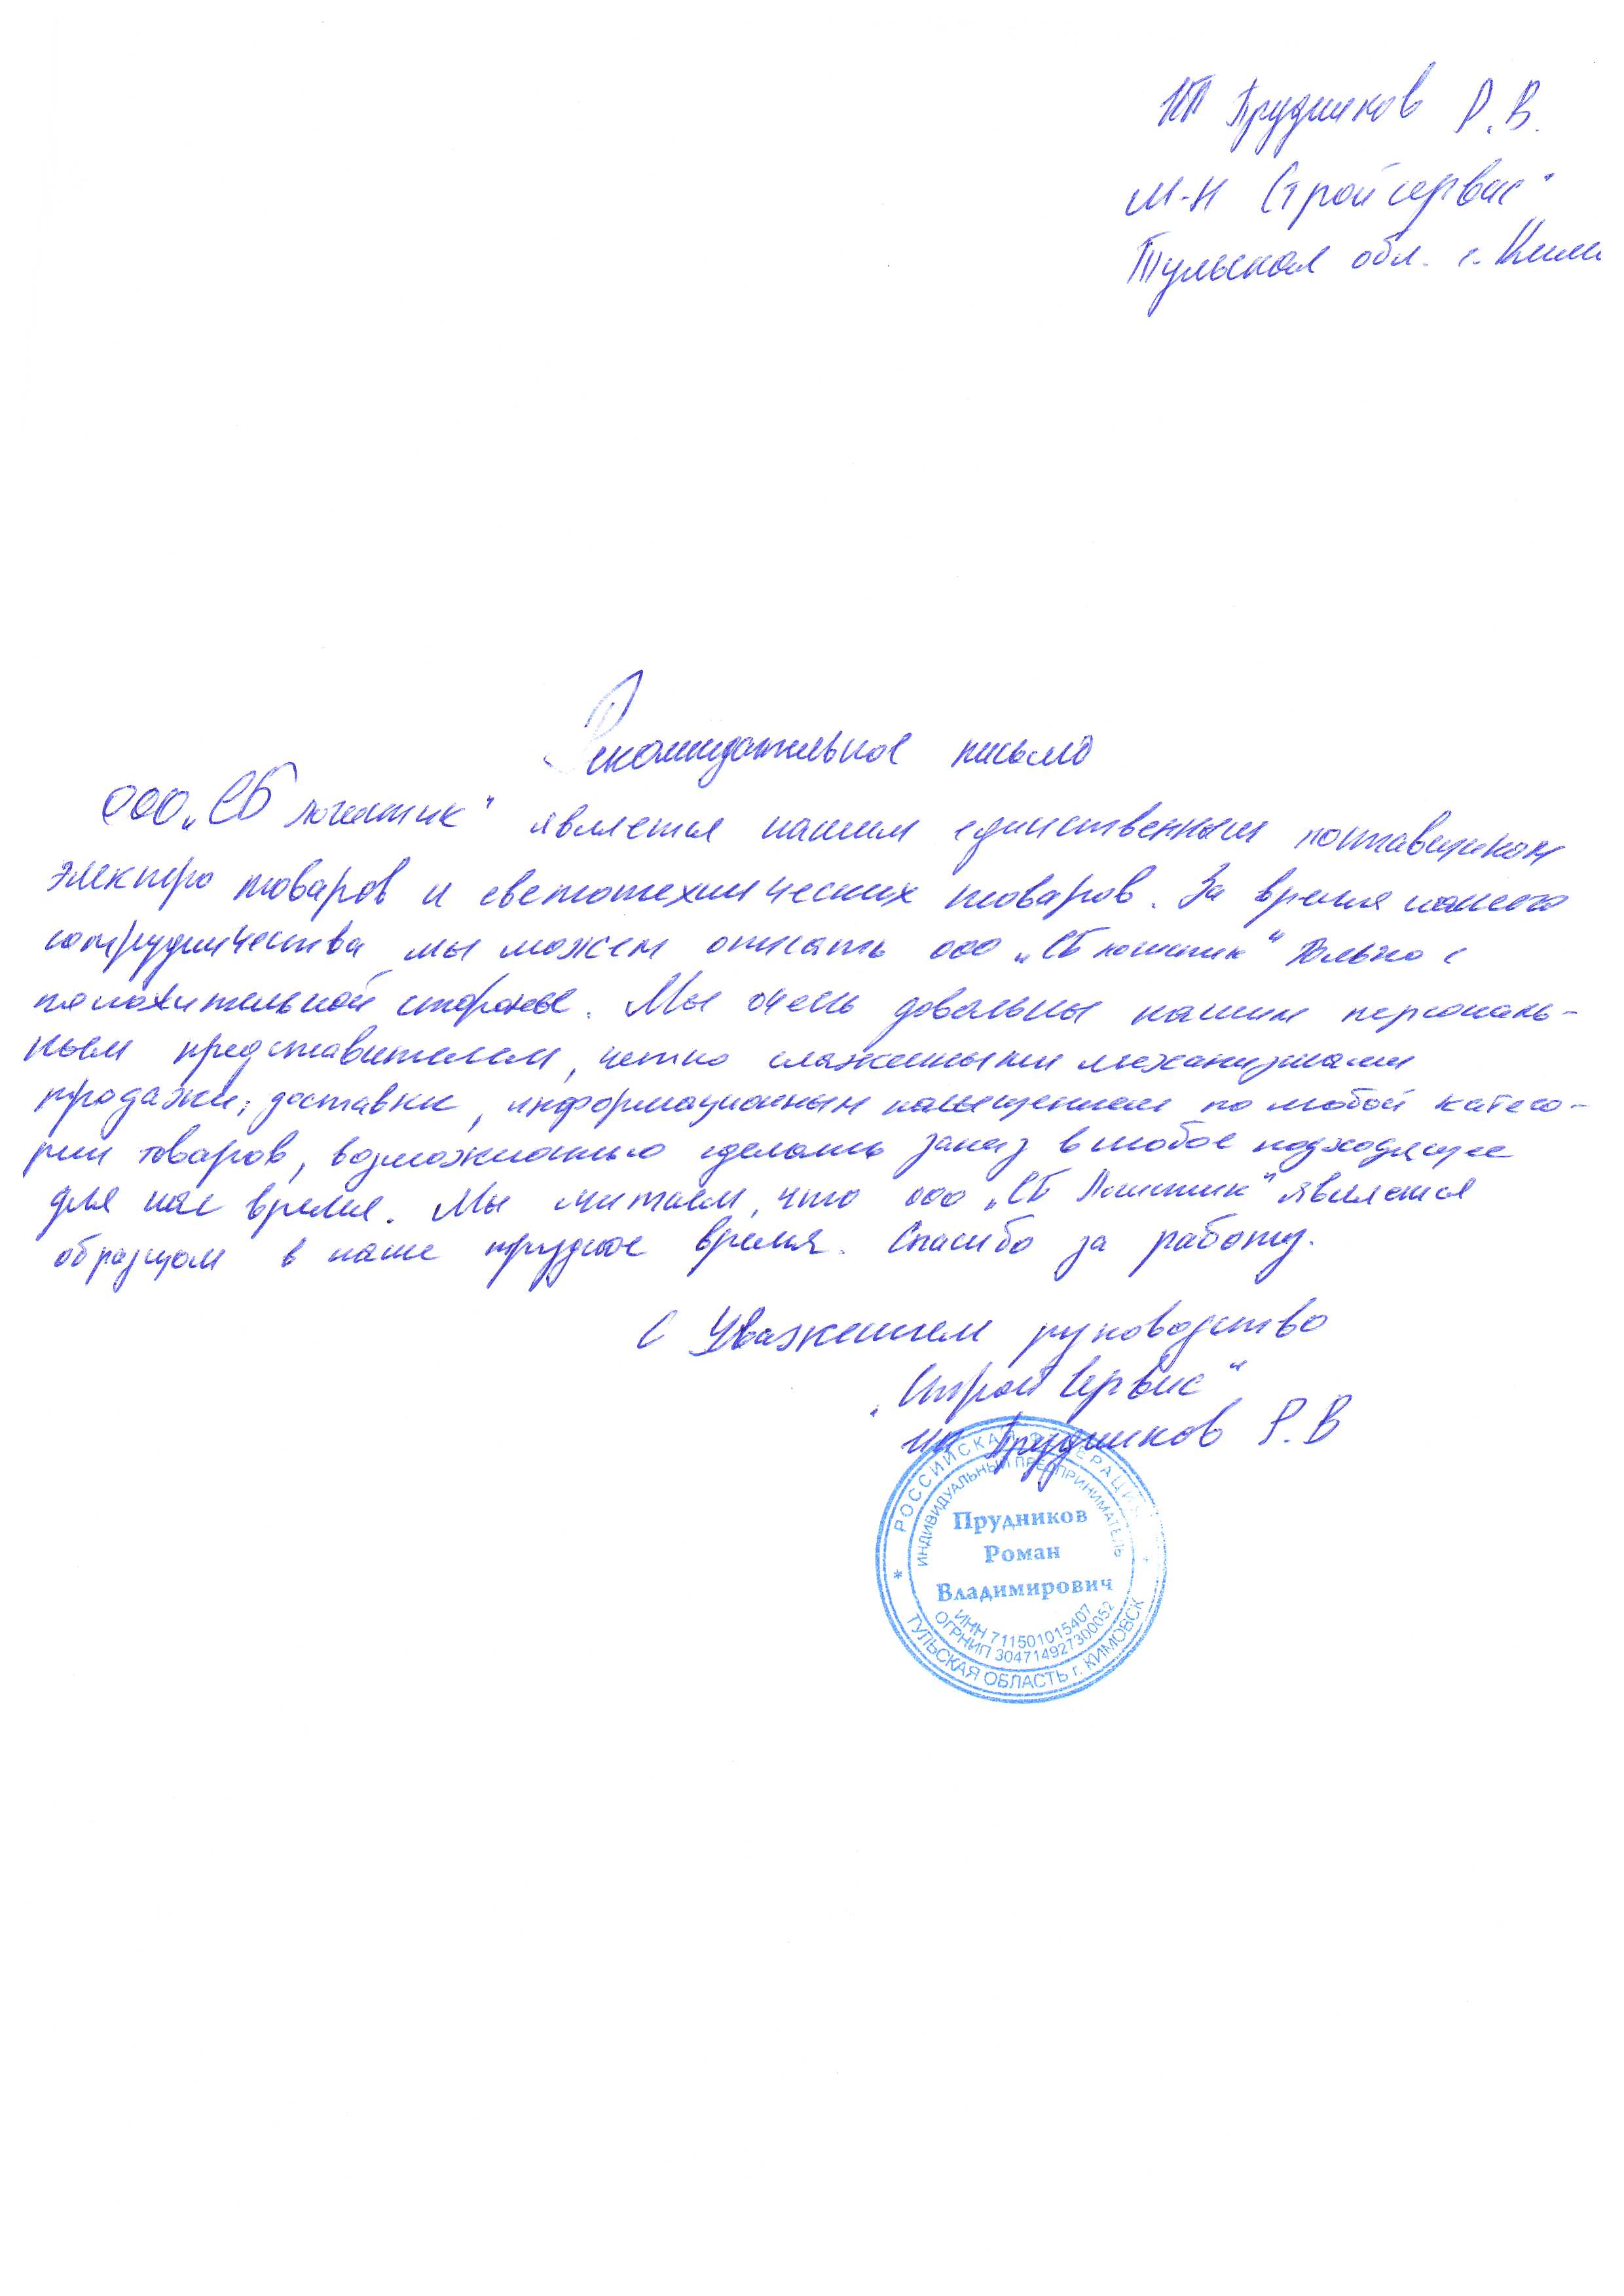 ИП Прудников Р.В.
м-н Стройсервис"
Тульская обл. г. Ким
Рекомендательное письмо
ООО „СБ логистик" является нашим единственным поставщиком
электро товаров и светотехнических товаров. За время нашего
сотрудничества мы можем описать ооо „СБ логистик" только с
положительной стороны. Мы очень довольны нашим персональ-
ным представителем, четко слаженными механизмами
продажи, доставки, информационным насыщением по любой катего-
рии товаров, возможностью сделать заказ в любое подходящее
для нас время. Мы считаем, что ооо „СБ Логистик" является
образцом в наше трудное время. Спасибо за работу.
С Уважением руководство
„Строй Сервис"
ИП Прудников Р.В
РОССИЙСКАЯ ФЕДЕРАЦИЯ
ИНДИВИДУАЛЬНЫЙ ПРЕДПРИНИМАТЕЛЬ
Прудников
Роман
Владимирович
ИНН 711501015407
ОГРНИП 304714927300052
* ТУЛЬСКАЯ ОБЛАСТЬ г. КИМОВСК *